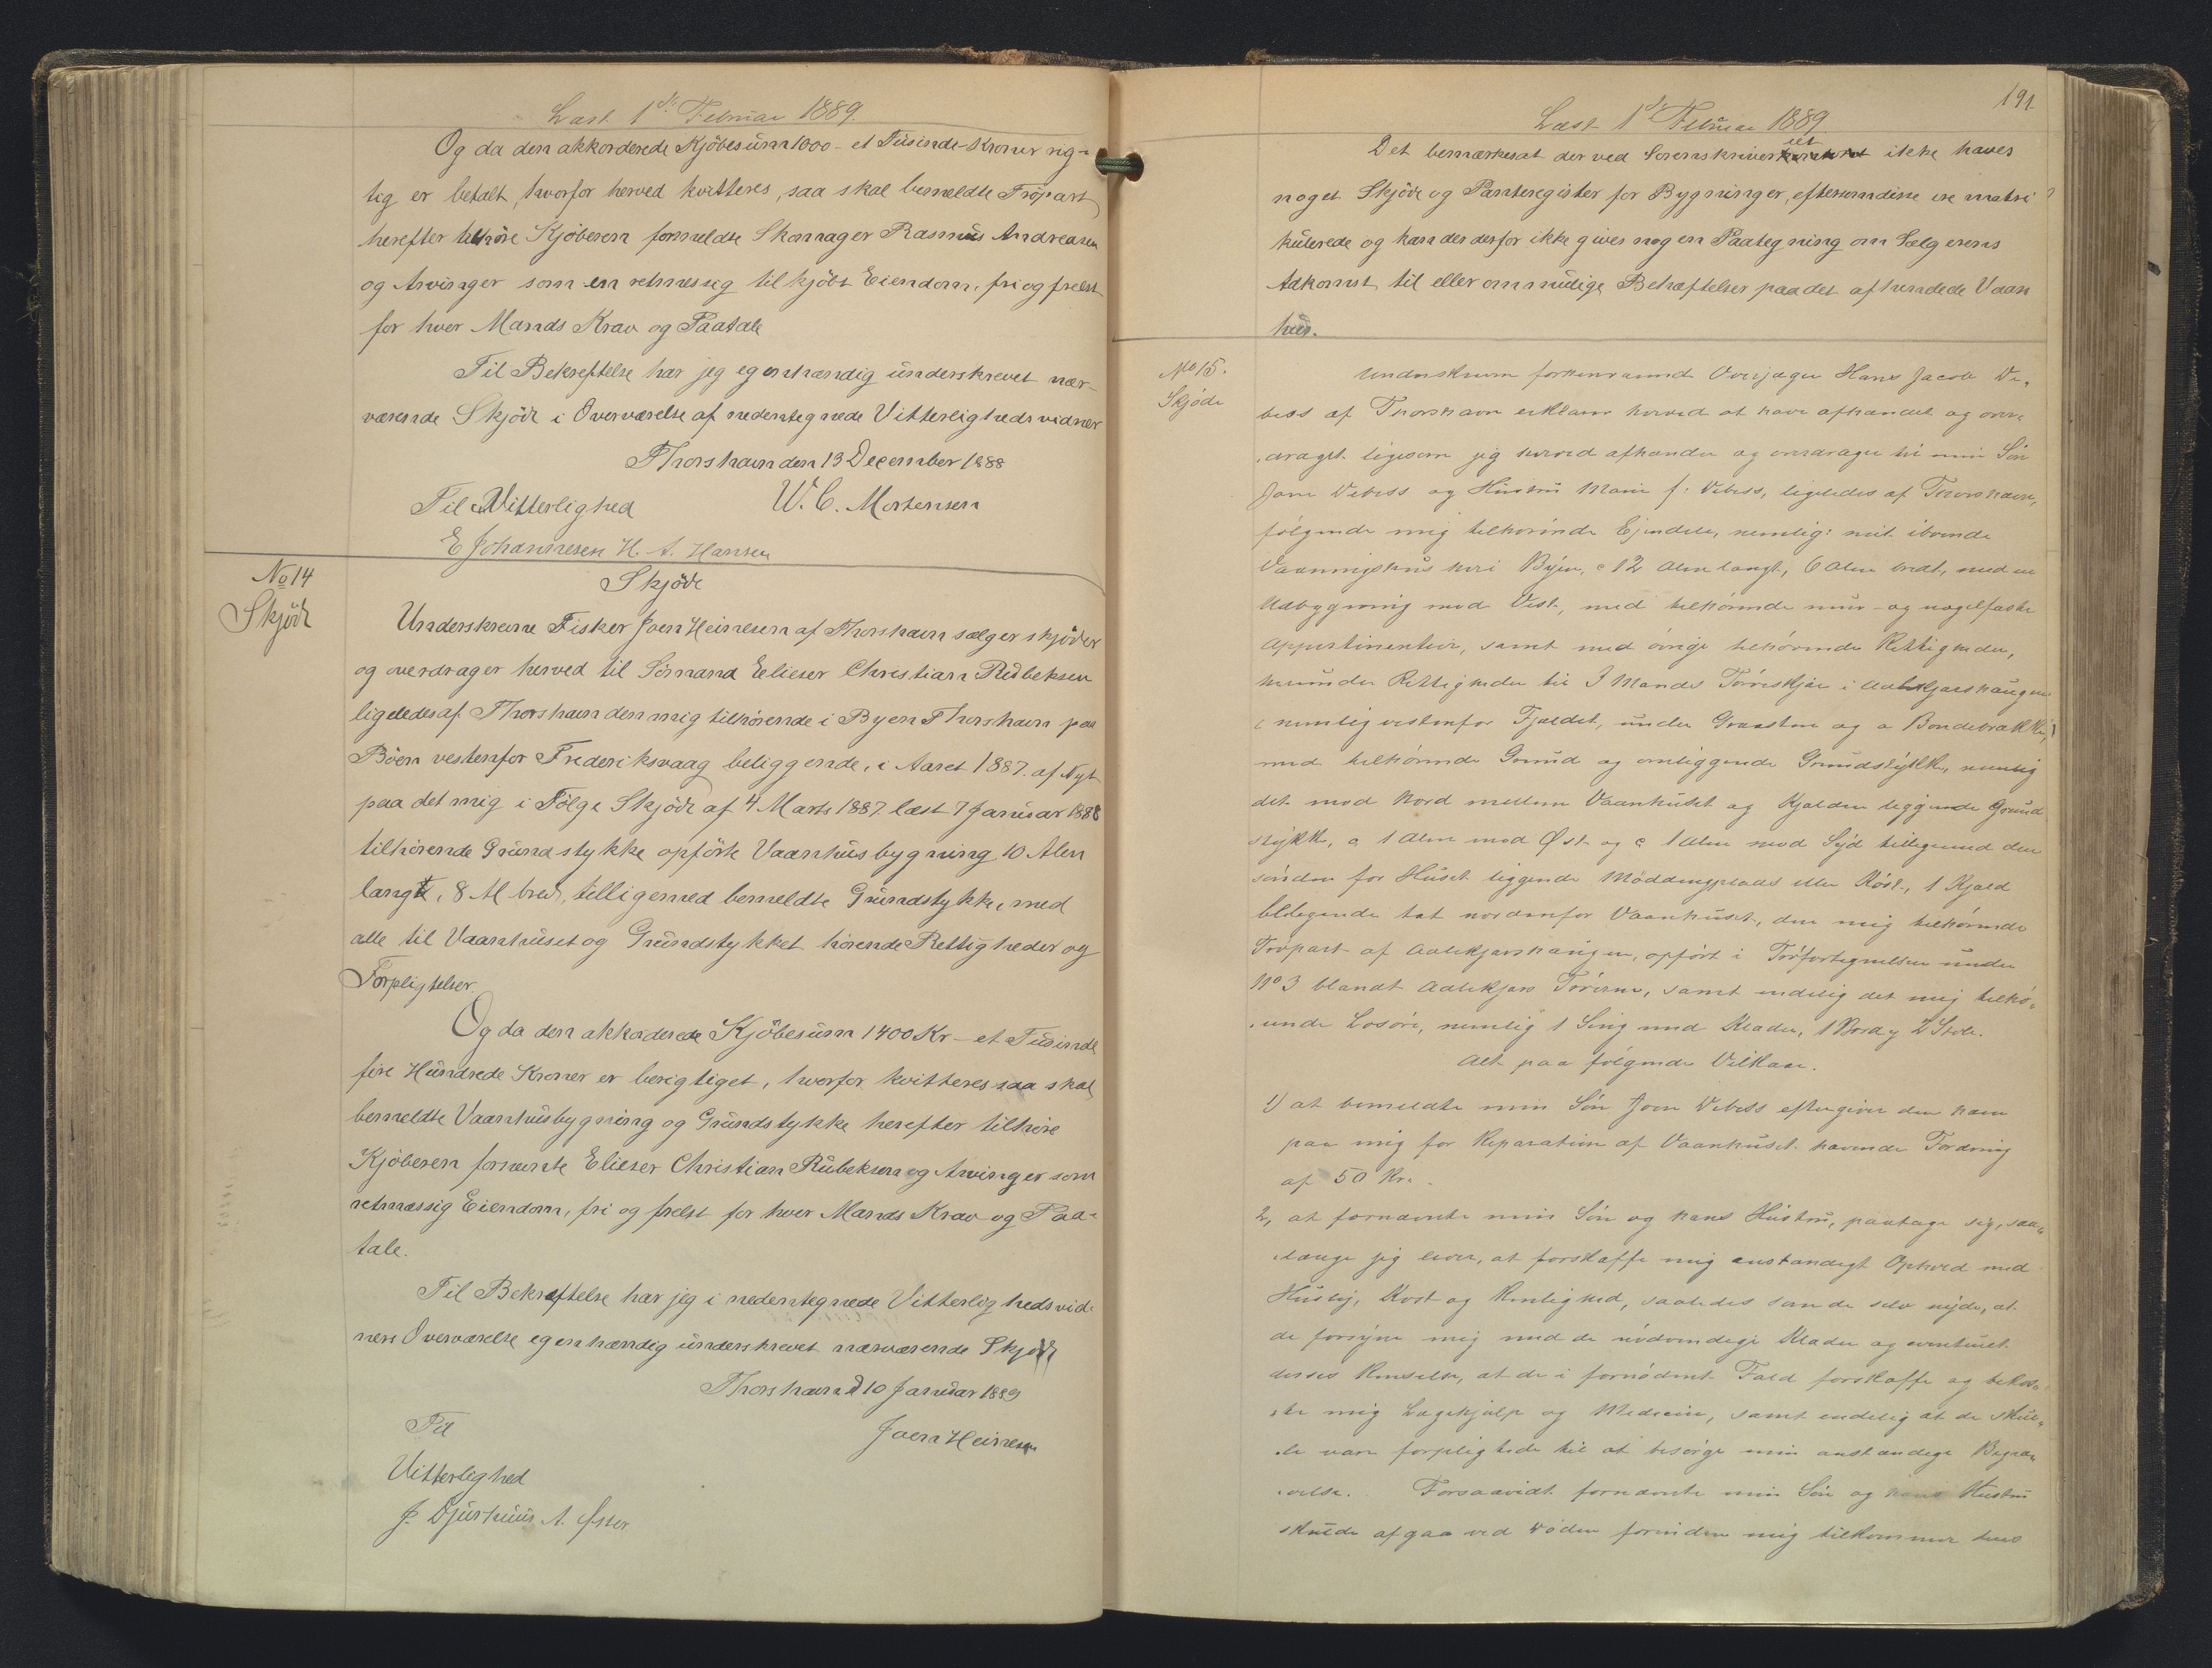 Læst 1ste Februar 1889.
Og da den akkorderede Kjöbesum 1000 - et Tusinde - Kroner rig-
tig er betalt, hvorfor herved kvitteres, saa skal bemeldte Tröpart
herefter tilhöre Kjöberen formeldte Skomager Rasmus Andreasen
og Arvinger som en retmessig tilkjöbt Eiendom, fri og frelst
for hver Mands Krav og Paatale
Til Bekreftelse har jeg egenhændig underskrevet nær-
værende Skjöde i Overværelse af nedentegnede Vitterligheds vidner
Thorshavn den 13 December 1888
Til Vitterlighed W. C. Mortensen
E Johannesen H. A. Hansen
No 14
Skjöde
Skjöde
Underskrevne Fisker Joen Heinesen af Thorshavn sælger skjöder
og overdrager herved til Sömand Elieser Christian Rubeksen
ligeledes af Thorshavn den mig tilhörende i Byen Thorshavn paa
Böen vestenfor Frederiksvaag beliggende, i Aaret 1887. af Nyt
paa det mig i Fölge Skjöde af 4 Marts 1887. læst 7 Januar 1888
tilhörende Grundstykke opförte Vaanhusbygning 10 Alen
langt, 8 Al bred, tilligemed bemeldte Grundstykke, med
alle til Vaanhuset og Grundstykket hörende Rettigheder og
Forpligtelser.
Og da den akkorderede Kjöbesum 1400 Kr - et Tusinde
fire Hundrede Kroner er berigtiget, hvorfor kvitteres saa skal
bemeldte Vaanhusbygning og Grundstykke herefter tilhöre
Kjöberen fornævnte Elieser Christian Rubeksen og Arvinger som
retmæssig Eiendom, fri og frelst for hver Mands Krav og Paa-
tale.
Til Bekræftelse har jeg i nedentegnede Vitterligheds vid-
ners Overværelse egenhændig underskrevet nærværende Skjöde
Thorshavn d 10 Januar 1889
Til Joen Heinesen
Vitterlighed
J. Djurhuus A.
191.
Læst 1ste Februar 1889.
Det bemærkes at der ved Sorenskriveriet ikke haves
noget Skjöde og Panteregister for Bygninger, eftersom disse ere matri
kulerede og kan der derfor ikke gives nogen Paategning om Sælgerens
Adkomst til eller om mulige Behæftelser paa det afhændede Vaan
hus.
No 15.
Skjöde
Underskrevne forhenværende Overjæger Hans Jacob De-
bess af Thorshavn erklærer herved at have afhændet og over-
draget ligesom jeg herved afhænder og overdrager til min Sön
Joen Debess og Hustru Marie f: Debess, ligeledes af Thorshavn,
fölgende mig tilhörende Ejendele, nemlig: mit iboende
Vaaningshus her i Byen, c 12 Alen langt, 6 Alen bredt, med en
Udbygning mod Vest, med tilhörende mur- og nagelfaste
Appertinentier, samt med övrige tilhörende Rettigheder,
herunder Rettigheder til 3 Mandes Törveskjær i Aalekjærshaugen
nemlig vestenfor Fjældet, under Graasten og a Bondebrække,
med tilhörende Grund og omliggende Grundstykke, nemlig
det mod Nord mellem Vaanhuset og Kjælden liggende Grund
stykke, c 1 Alen mod Øst og c 1 Alen mod Syd tilligemed den
sönden for Huset liggende Möddingplads eller Köst, 1 Kjæld
beliggende tæt nordenfor Vaanhuset, den mig tilhörende
Tröpart af Aalekjærshaugen, opfört i Tröfortegnelsen under
No 3 blandt Aalekjærs Tröerne, samt endelig det mig tilhö-
rende Losöre, nemlig 1 Seng med Klæder, 1 Bord og 2 Stole.
Alt paa fölgende Vilkaar.
1) at bemeldte min Sön Joen Debess eftergiver den ham
paa mig for Reparation af Vaanhuset havende Fordring
af 50 Kr.
2, at fornævnte min Sön og hans Hustru, paatage sig, saa-
længe jeg lever, at forskaffe mig anstændigt Ophold med
Husly, Kost og Renlighed, saaledes som de selv nyde, at
de forsyne mig med de nödvendige Klæder og eventuelt
derses Renselse, at de i fornödent Fald forskaffe og bekos-
te mig Lægehjælp og Medicin, samt endelig at de skul-
le være forpligtede til at besörge min anstændige Begra-
velse. Forsaavidt fornævnte min Sön og hans Hustru
skulde afgaa ved Döden forinden mig tilkommer det